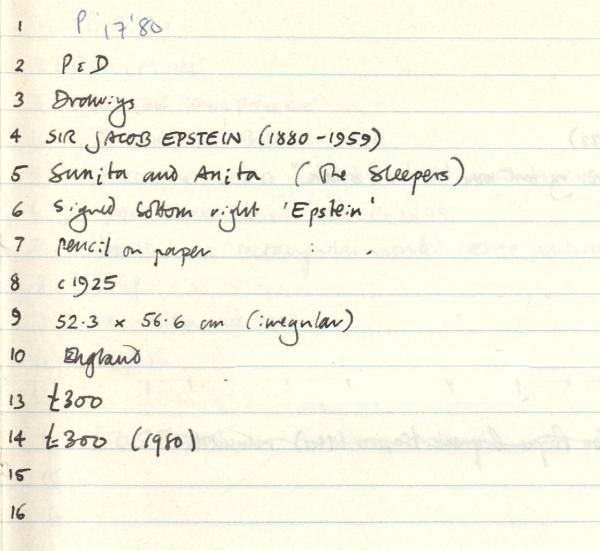 1 P. 17'80
2 P & D
3 Drawings
4 SIR JACOB EPSTEIN (1880-1959)
5 Sunita and Anita (The Sleepers)
6 Signed bottom right 'Epstein'
7 pencil on paper
8 c1925
9 52.3 x 56.6 cm (irregular)
10 England
13 £300
14 £300 (1980)
15
16